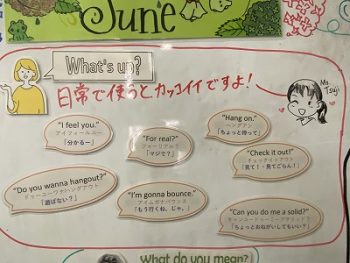 June
What's up?
日常で使うとカッコイイですよ!
Ms
Tsuji
"I feel you."
アイフィールユー
「分かるー」
"For real?"
フォーリアル?
「マジで?」
"Hang on."
ヘングアン
「ちょっと待って」
"Check it out!"
チェックイトアウト
「見て!・見てごらん!」
"Do you wanna hangout?"
「遊ばない?」
"I'm gonna bounce."
アイムガナバウンス
「もう行くね、じゃ。」
"Can you do me a solid?"
「ちょっとおねがいしてもいい?」
What do you mean?